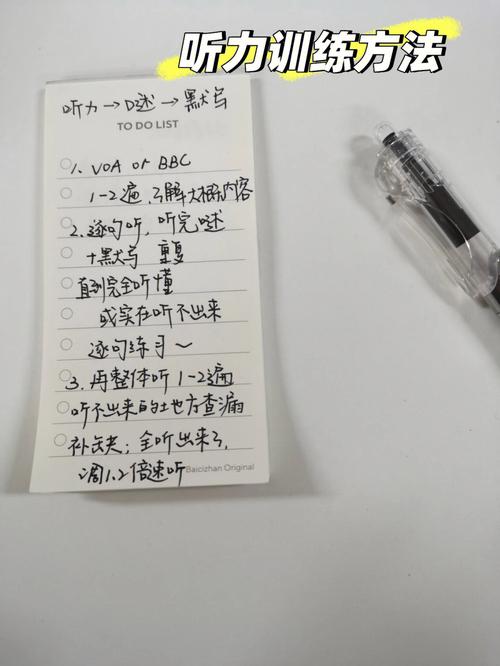 听力训练方法
听力→口述→默写
TO DO LIST
1. VOA or BBC
1-2遍,了解大概内容
2.逐句听,听完述
+默写 重复
直到完全听懂
或实在听不出来
逐句练习~
3.再整体听1-2遍
听不出来的地方查漏
补缺;全听出来了,
调1.2倍速听
Baicizhan Original